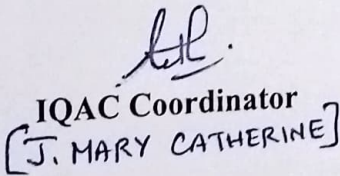 IQAC Coordinator
[J. MARY CATHERINE]